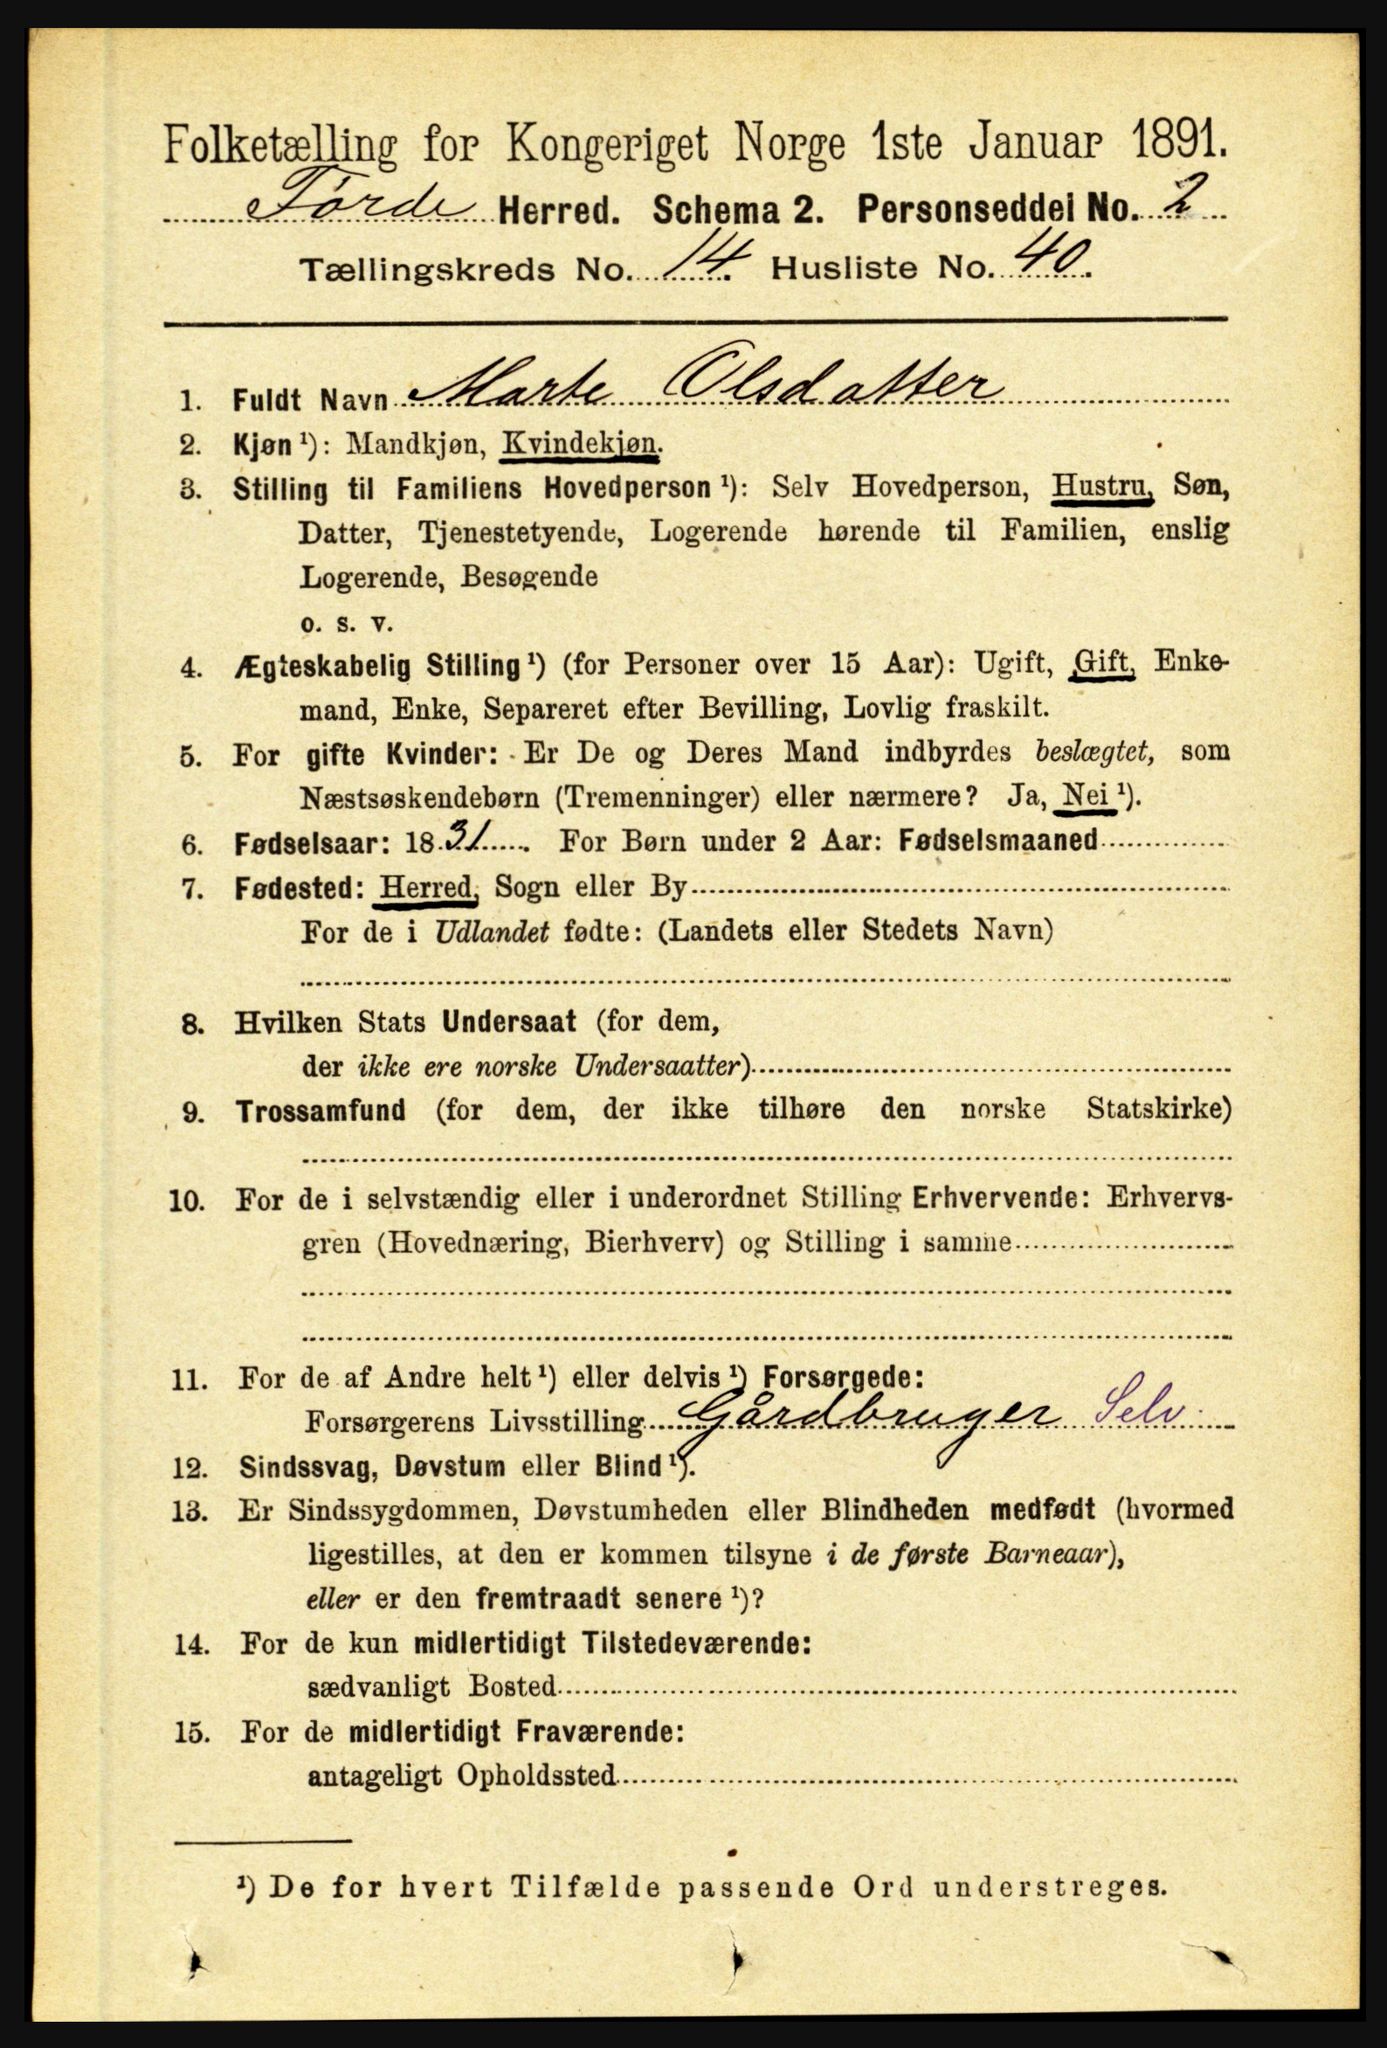 Folketælling for Kongeriget Norge 1ste Januar 1891.
Førde Herred. Schema 2. Personseddel No. 2
Tællingskreds No. 14. Husliste No. 40.
1. Fuldt Navn Marte Olsdatter
2. Kjøn ¹): Mandkjøn, Kvindekjøn.
3. Stilling til Familiens Hovedperson ¹): Selv Hovedperson, Hustru, Søn,
Datter, Tjenestetyende, Logerende hørende til Familien, enslig
Logerende, Besøgende
o. s. v.
4. Ægteskabelig Stilling ¹) (for Personer over 15 Aar): Ugift, Gift, Enke-
mand, Enke, Separeret efter Bevilling, Lovlig fraskilt.
5. For gifte Kvinder: Er De og Deres Mand indbyrdes beslægtet, som
Næstsøskendebørn (Tremenninger) eller nærmere? Ja, Nei ¹).
6. Fødselsaar: 1831. For Børn under 2 Aar: Fødselsmaaned
7. Fødested: Herred, Sogn eller By
For de i Udlandet fødte: (Landets eller Stedets Navn)
8. Hvilken Stats Undersaat (for dem,
der ikke ere norske Undersaatter)
9. Trossamfund (for dem, der ikke tilhøre den norske Statskirke)
10. For de i selvstændig eller i underordnet Stilling Erhvervende: Erhvervs-
gren (Hovednæring, Bierhverv) og Stilling i samme
11. For de af Andre helt ¹) eller delvis ¹) Forsørgede:
Forsørgerens Livsstilling Gårdbruger Selv
12. Sindssvag, Døvstum eller Blind ¹).
13. Er Sindssygdommen, Døvstumheden eller Blindheden medfødt (hvormed
ligestilles, at den er kommen tilsyne i de første Barneaar),
eller er den fremtraadt senere ¹)?
14. For de kun midlertidigt Tilstedeværende:
sædvanligt Bosted
15. For de midlertidigt Fraværende:
antageligt Opholdssted
¹) De for hvert Tilfælde passende Ord understreges.